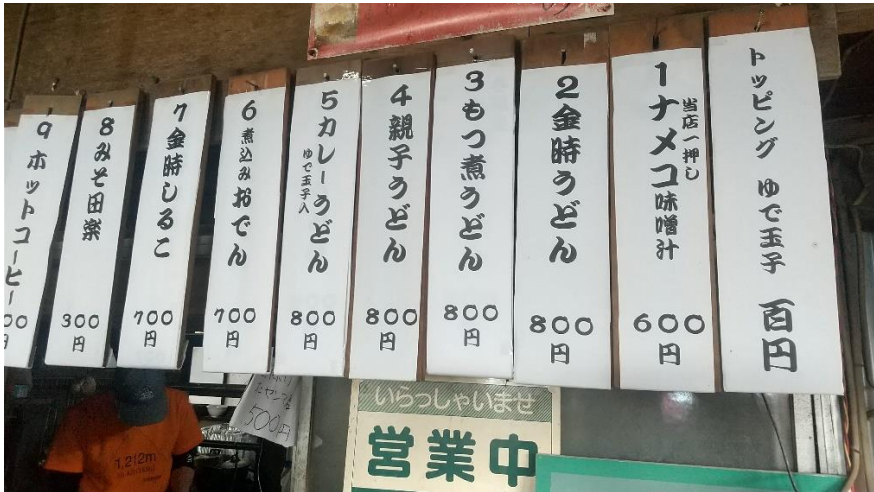 トッピング ゆで玉子 百円
1 ナメコ味噌汁
当店一押し
600円
2 金時うどん
800円
3 もつ煮うどん
800円
4 親子うどん
800円
5 カレーうどん
ゆで玉子入
800円
6 煮込みおでん
700円
7 金時しるこ
700円
8 みそ田楽
300円
9 ホットコーヒー
00円
500円
いらっしゃいませ
営業中
1,212m